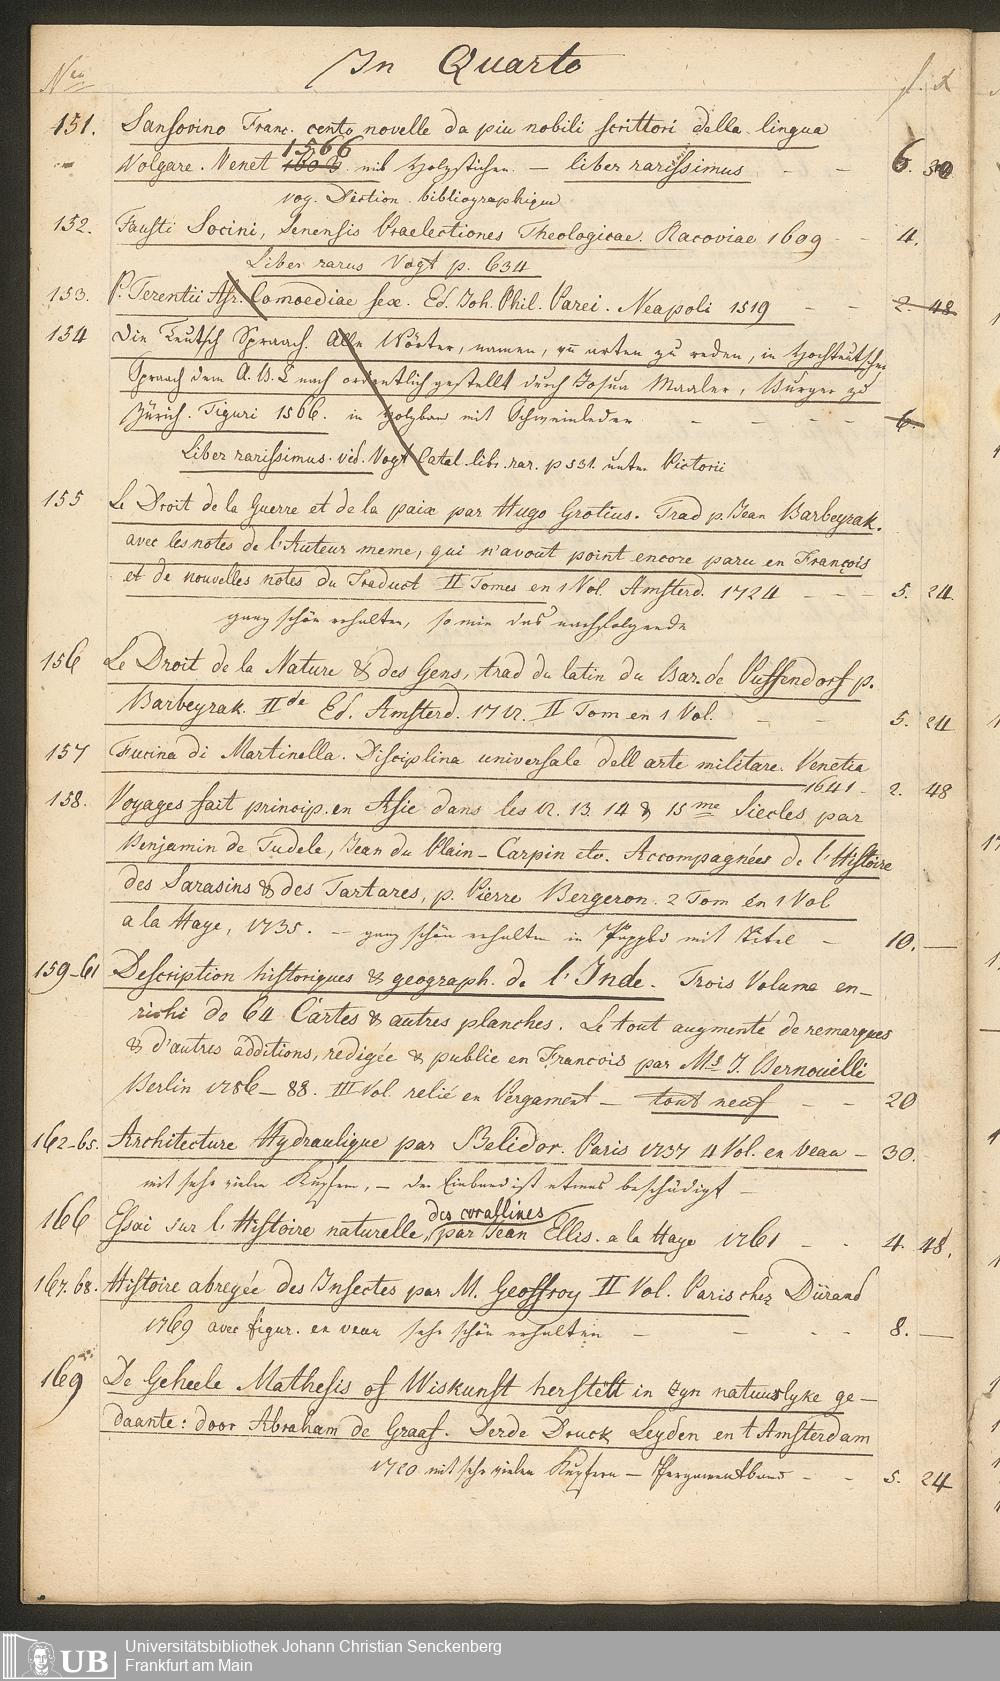 In Quarto
Nro f. x
151. Sansovino Franc. cento novelle da piu nobili scrittori della lingua
Volgare. Venet 1566 mit Holzstichen. — liber rarissimus - - 6. 30
vog. Diction. bibliographique
152. Fausti Socini, Senensis Praelectiones Theologicae. Racoviae 1609 - - 4.
Liber rarus Vogt p. 634
153. P. Terentii Afr. Comoediae sex. Ed. Joh. Phil. Parei. Neapoli 1519 - - 2. 48
154 Die Teutsch Spraach. Alle Wörter, namen, uñ arten zu reden, in Hochteütscher
Spraach dem A.B.C nach ordentlich gestellt durch Josua Maaler, Burger zů
Zürich. Tiguri 1566. in Holzband mit Schweinleder - - - - 6.
Liber rarissimus. vid. Vogt Catal. libr. rar. p 531. unter Pictorii
155 Le Droit de la Guerre et de la paix par Hugo Grotius. Trad p. Jean Barbeyrak.
avec les notes de l'Auteur meme, qui n'avout point encore paru en François
et de nouvelles notes du Traduct II Tomes en 1 Vol. Amsterd. 1724 - - - 5. 24.
ganz schön erhalten, so wie das nachfolgende
156 Le Droit de la Nature & des Gens, trad du latin du Bar. de Puffendorf p.
Barbeyrak. IIde Ed. Amsterd. 1712. II Tom en 1 Vol. - - 5. 24
157 Fucina di Martinella. Disciplina universale dell arte militare. Venetia
1641 - 2. 48
158. Voyages fait princip. en Asie dans les 12. 13. 14 & 15me Siecles par
Benjamin de Tudele, Jean du Plain-Carpin etc. Accompagnées de l'Histoire
des Sarasins & des Tartares, p. Pierre Bergeron. 2 Tom en 1 Vol
a la Haye, 1735. — ganz schön erhalten in Pappbd mit Titel - 10. —
159-61 Description historiques & geograph. de l'Inde. Trois Volume en-
richi de 64 Cartes & autres planches. Le tout augmenté de remarques
& d'autres additions, redigée & publie en Francois par Mr J. Bernouilli
Berlin 1786-88. III Vol. relié en Pergament — tout neuf - - 20
162-65. Architecture Hydraulique par Belidor. Paris 1737 4 Vol. en veau - 30.
mit sehr vielen Kupfern, - der Einband ist etwas beschädigt —
166 Essai sur l'Histoire naturelle, des corallines par Jean Ellis. a la Haye 1761 - - 4. 48.
167.68. Histoire abregée des Insectes par M. Geoffroy II Vol. Paris chez Dürand
1769 avec figur. en veau sehr schön erhalten - - - - 8. —
169 De Geheele Mathesis of Wiskunst herstelt in zyn natuurlyke ge-
daante: door Abraham de Graaf. Derde Druck Leyden en t Amsterdam
1720 mit sehr vielen Kupfern — Pergamentband - - 5. 24
Universitätsbibliothek Johann Christian Senckenberg
Frankfurt am Main
UB